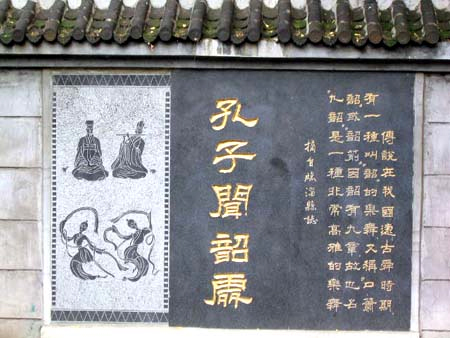 傳說在我國遠古舜時期
有一種叫韶的樂舞又稱口簫
韶或韶箾因韶有九章故也名
九韶是一種非常高雅的樂舞
摘自臨淄縣誌
孔子聞韶處